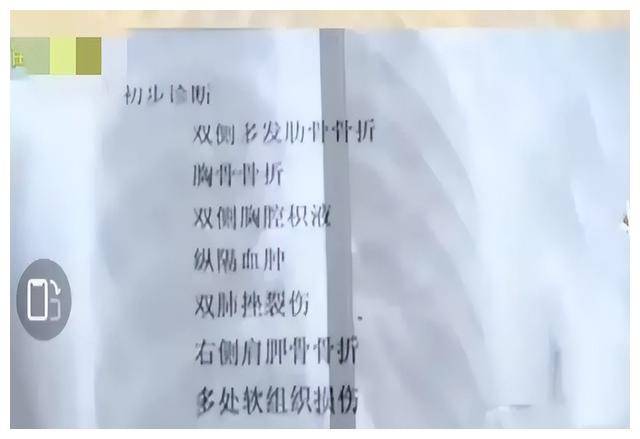 初步诊断
双侧多发肋骨骨折
胸骨骨折
双侧胸腔积液
纵隔血肿
双肺挫裂伤
右侧肩胛骨骨折
多处软组织损伤